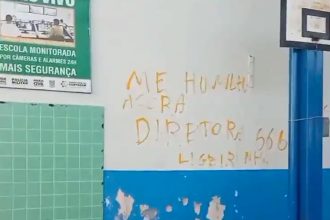 VIVO
ESCOLA MONITORADA
POR CÂMERAS E ALARMES 24H
MAIS SEGURANÇA
ME HUMILHA
AGORA
DIRETORA 666